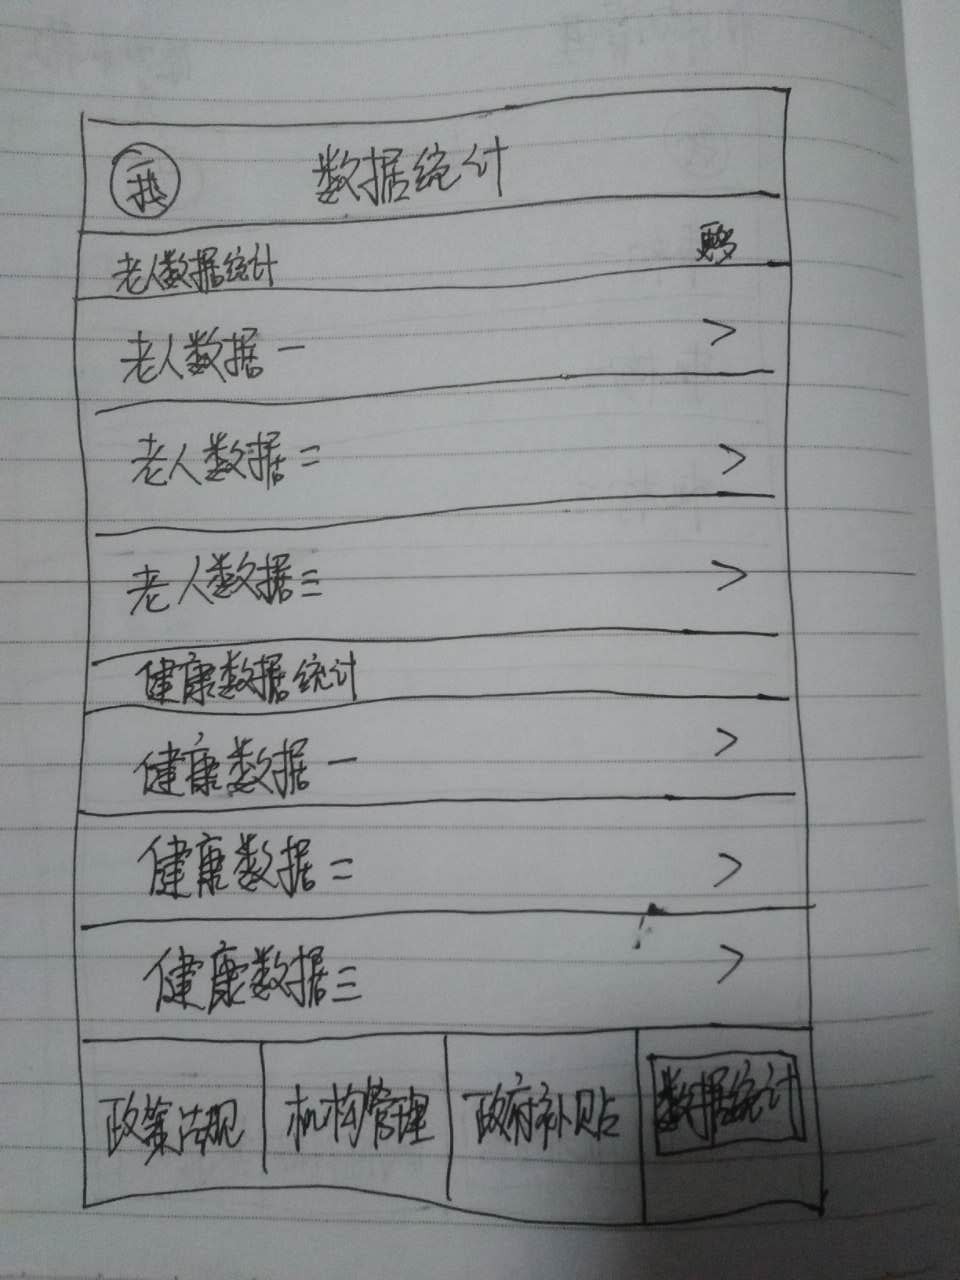 我 数据统计
老人数据统计 更多
老人数据一 >
老人数据二 >
老人数据三 >
健康数据统计
健康数据一 >
健康数据二 >
健康数据三 >
政策法规 机构管理 政府补贴 数据统计